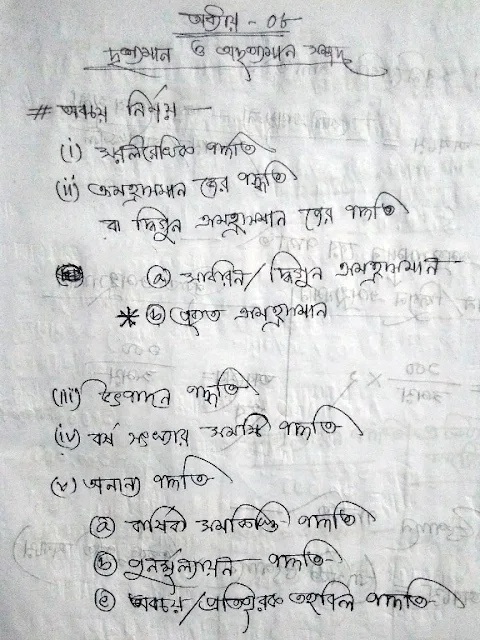 অধ্যায় - ০৮
দৃশ্যমান ও অদৃশ্যমান সম্পদ
# অবচয় নির্ণয় —
(i) সরলরৈখিক পদ্ধতি
(ii) ক্রমহ্রাসমান জের পদ্ধতি
বা দ্বিগুন ক্রমহ্রাসমান জের পদ্ধতি
ⓐ / দ্বিগুন ক্রমহ্রাসমান
* ⓑ প্রকৃত ক্রমহ্রাসমান
(iii) উৎপাদন পদ্ধতি
(iv) বর্ষ সংখ্যার সমষ্টি পদ্ধতি
(v) অনান্য পদ্ধতি
ⓐ বার্ষিক সমকিস্তি পদ্ধতি
ⓑ পুনর্মূল্যায়ন পদ্ধতি
ⓒ অবচয়/প্রতিপূরক তহবিল পদ্ধতি